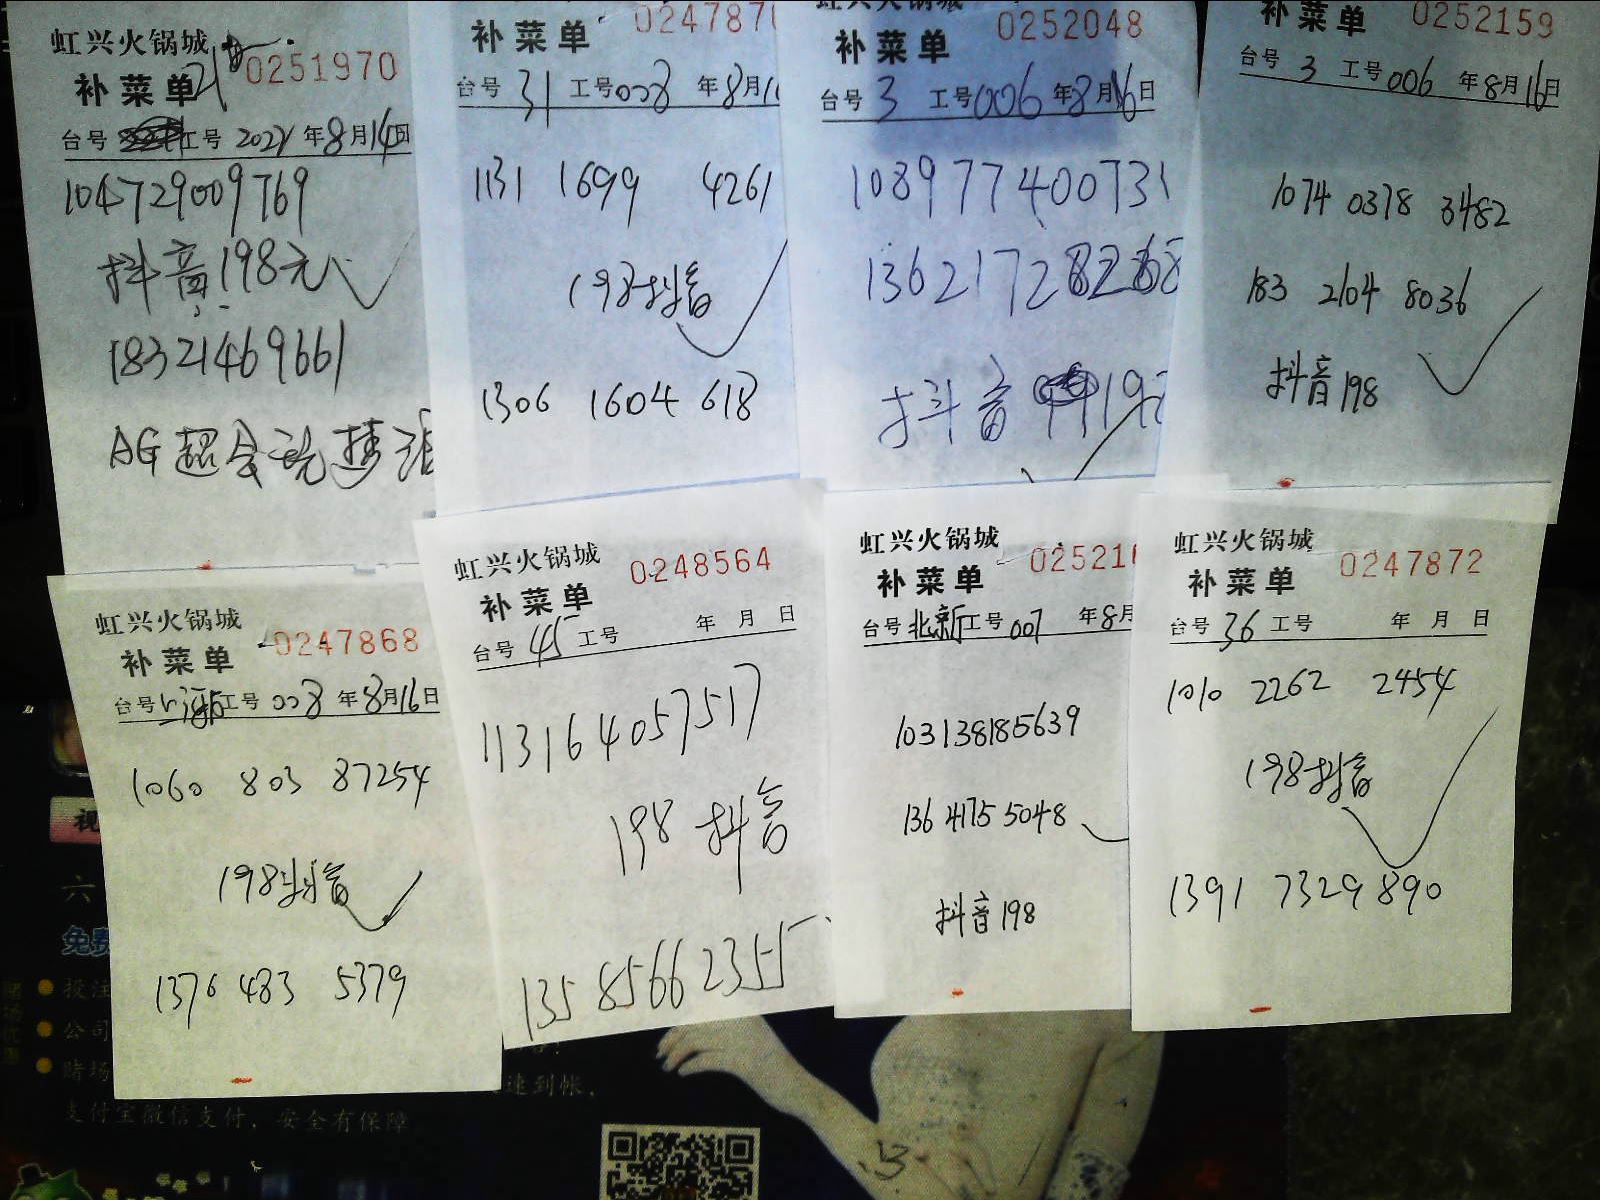 虹兴火锅城
补菜单 21 0251970
台号 工号 2021 年8月14日
104729009769
抖音198元
18321469661
AG超会玩
补菜单 024787
台号 31 工号 008 年8月1
1131 1699 4261
198抖音
1306 1604 618
补菜单 0252048
台号 3 工号 006 年8月16日
108977400731
抖音 198
补菜单 0252159
台号 3 工号 006 年8月16日
1074 0378 3482
183 2104 8036
抖音198
虹兴火锅城
补菜单 0247868
台号 上海 工号 008 年8月16日
1060 803 87254
198抖音
1376 483 5379
虹兴火锅城
补菜单 0248564
台号 45 工号 年 月 日
113164057517
198 抖音
135 8566 2355
虹兴火锅城
补菜单 025216
台号 北京厅 工号 007 年8月
103138185639
136 4175 5048
抖音198
虹兴火锅城
补菜单 0247872
台号 36 工号 年 月 日
1010 2262 2454
198抖音
1391 7329 890
视
六
免费
投注
公司
赌场
速到帐,
支付宝微信支付,安全有保障